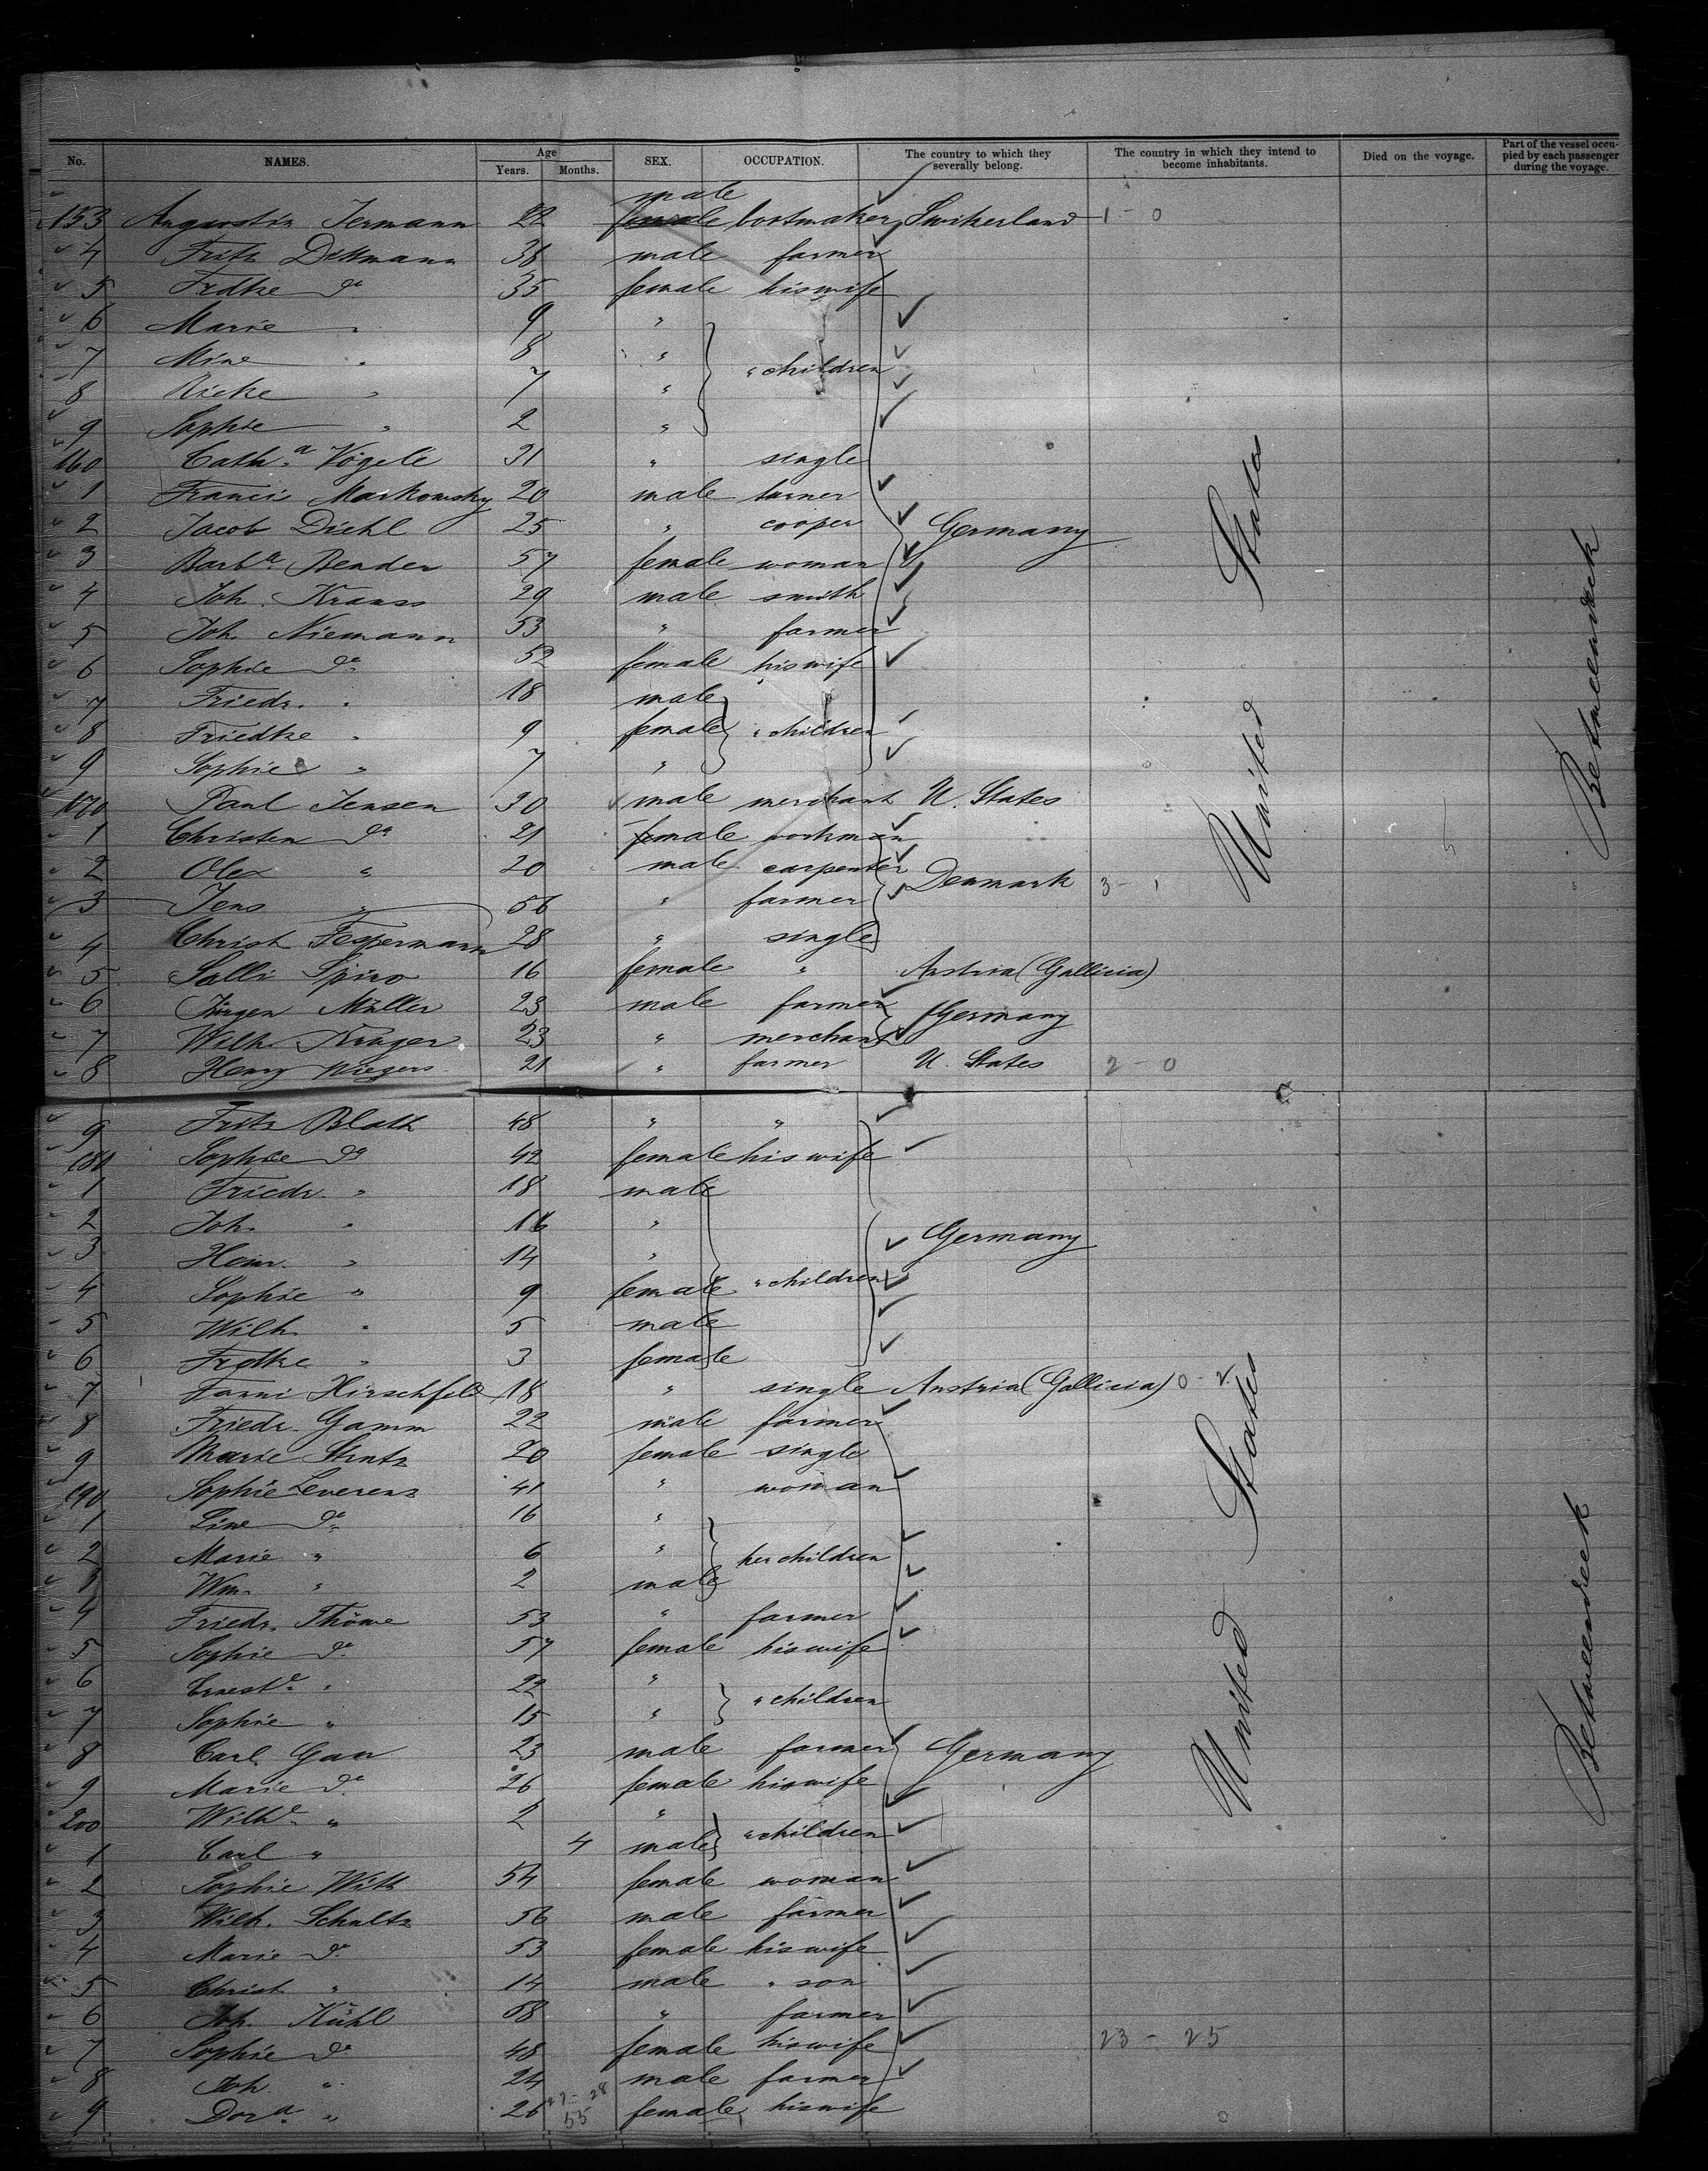 No. NAMES. Age Years. Months. SEX. OCCUPATION. The country to which they severally belong. The country in which they intend to become inhabitants. Died on the voyage. Part of the vessel occupied by each passenger during the voyage.
male
153 Augustin Jermann 22 female bootmaker Switzerland 1 - 0
4 Fritz Dettmann 38 male farmer
5 Frdke do 35 female his wife
6 Marie " 9 "
7 Mine " 8 "
" children
8 Rieke " 7 "
9 Sophie " 2 "
160 Cath.a Vögele 31 " single
1 Francis Markowsky 20 male turner
2 Jacob Diehl 25 " cooper Germany
3 Barba Bender 57 female woman
4 Joh. Krauss 29 male smith
5 Joh. Niemann 53 " farmer
6 Sophie do 52 female his wife
7 Friedr. " 18 male
8 Friedke " 9 female " children
9 Sophie " 7 "
170 Paul Jensen 30 male merchant U. States
1 Christen do 21 female workman
2 Ole " 20 male carpenter
Denmark 3 - 1
3 Jens " 56 " farmer
4 Christ Fespermann 28 " single
5 Salli Spiro 16 female " Austria (Gallicia)
6 Jürgen Müller 23 male farmer Germany
7 Wilh. Krüger 23 " merchant
8 Henry Wiegers 21 " farmer U. States 2 - 0
United States
Betweendeck
9 Fritz Blath 48 " "
180 Sophie do 42 female his wife
1 Friedr. " 18 male
2 Joh. " 16 "
Germany
3 Heinr. " 14 "
4 Sophie " 9 female " children
5 Wilh. " 5 male
6 Frdke " 3 female
7 Fanni Hirschfeld 18 " single Austria (Gallicia) 0 - 2
8 Friedr. Gamm 22 male farmer
9 Marie Stutz 20 female single
190 Sophie Leverenz 41 " woman
1 Line do 16 "
2 Marie " 6 " her children
3 Wm. " 2 male
4 Friedr. Thöme 53 " farmer
5 Sophie do 57 female his wife
6 Ernest.e " 22 "
" children
7 Sophie " 15 "
8 Carl Gau 23 male farmer Germany
9 Marie do 26 female his wife
200 Wilh.e " 2 "
" children
1 Carl " 4 male
2 Sophie Witt 54 female woman
3 Wilh. Schultz 56 male farmer
4 Marie do 53 female his wife
5 Christ " 14 male " son
6 Joh. Kühl 58 " farmer
7 Sophie do 48 female his wife 23 - 25
8 Joh. " 24 male farmer
27 - 28
9 Dora " 26 55 female his wife
United States
Betweendeck